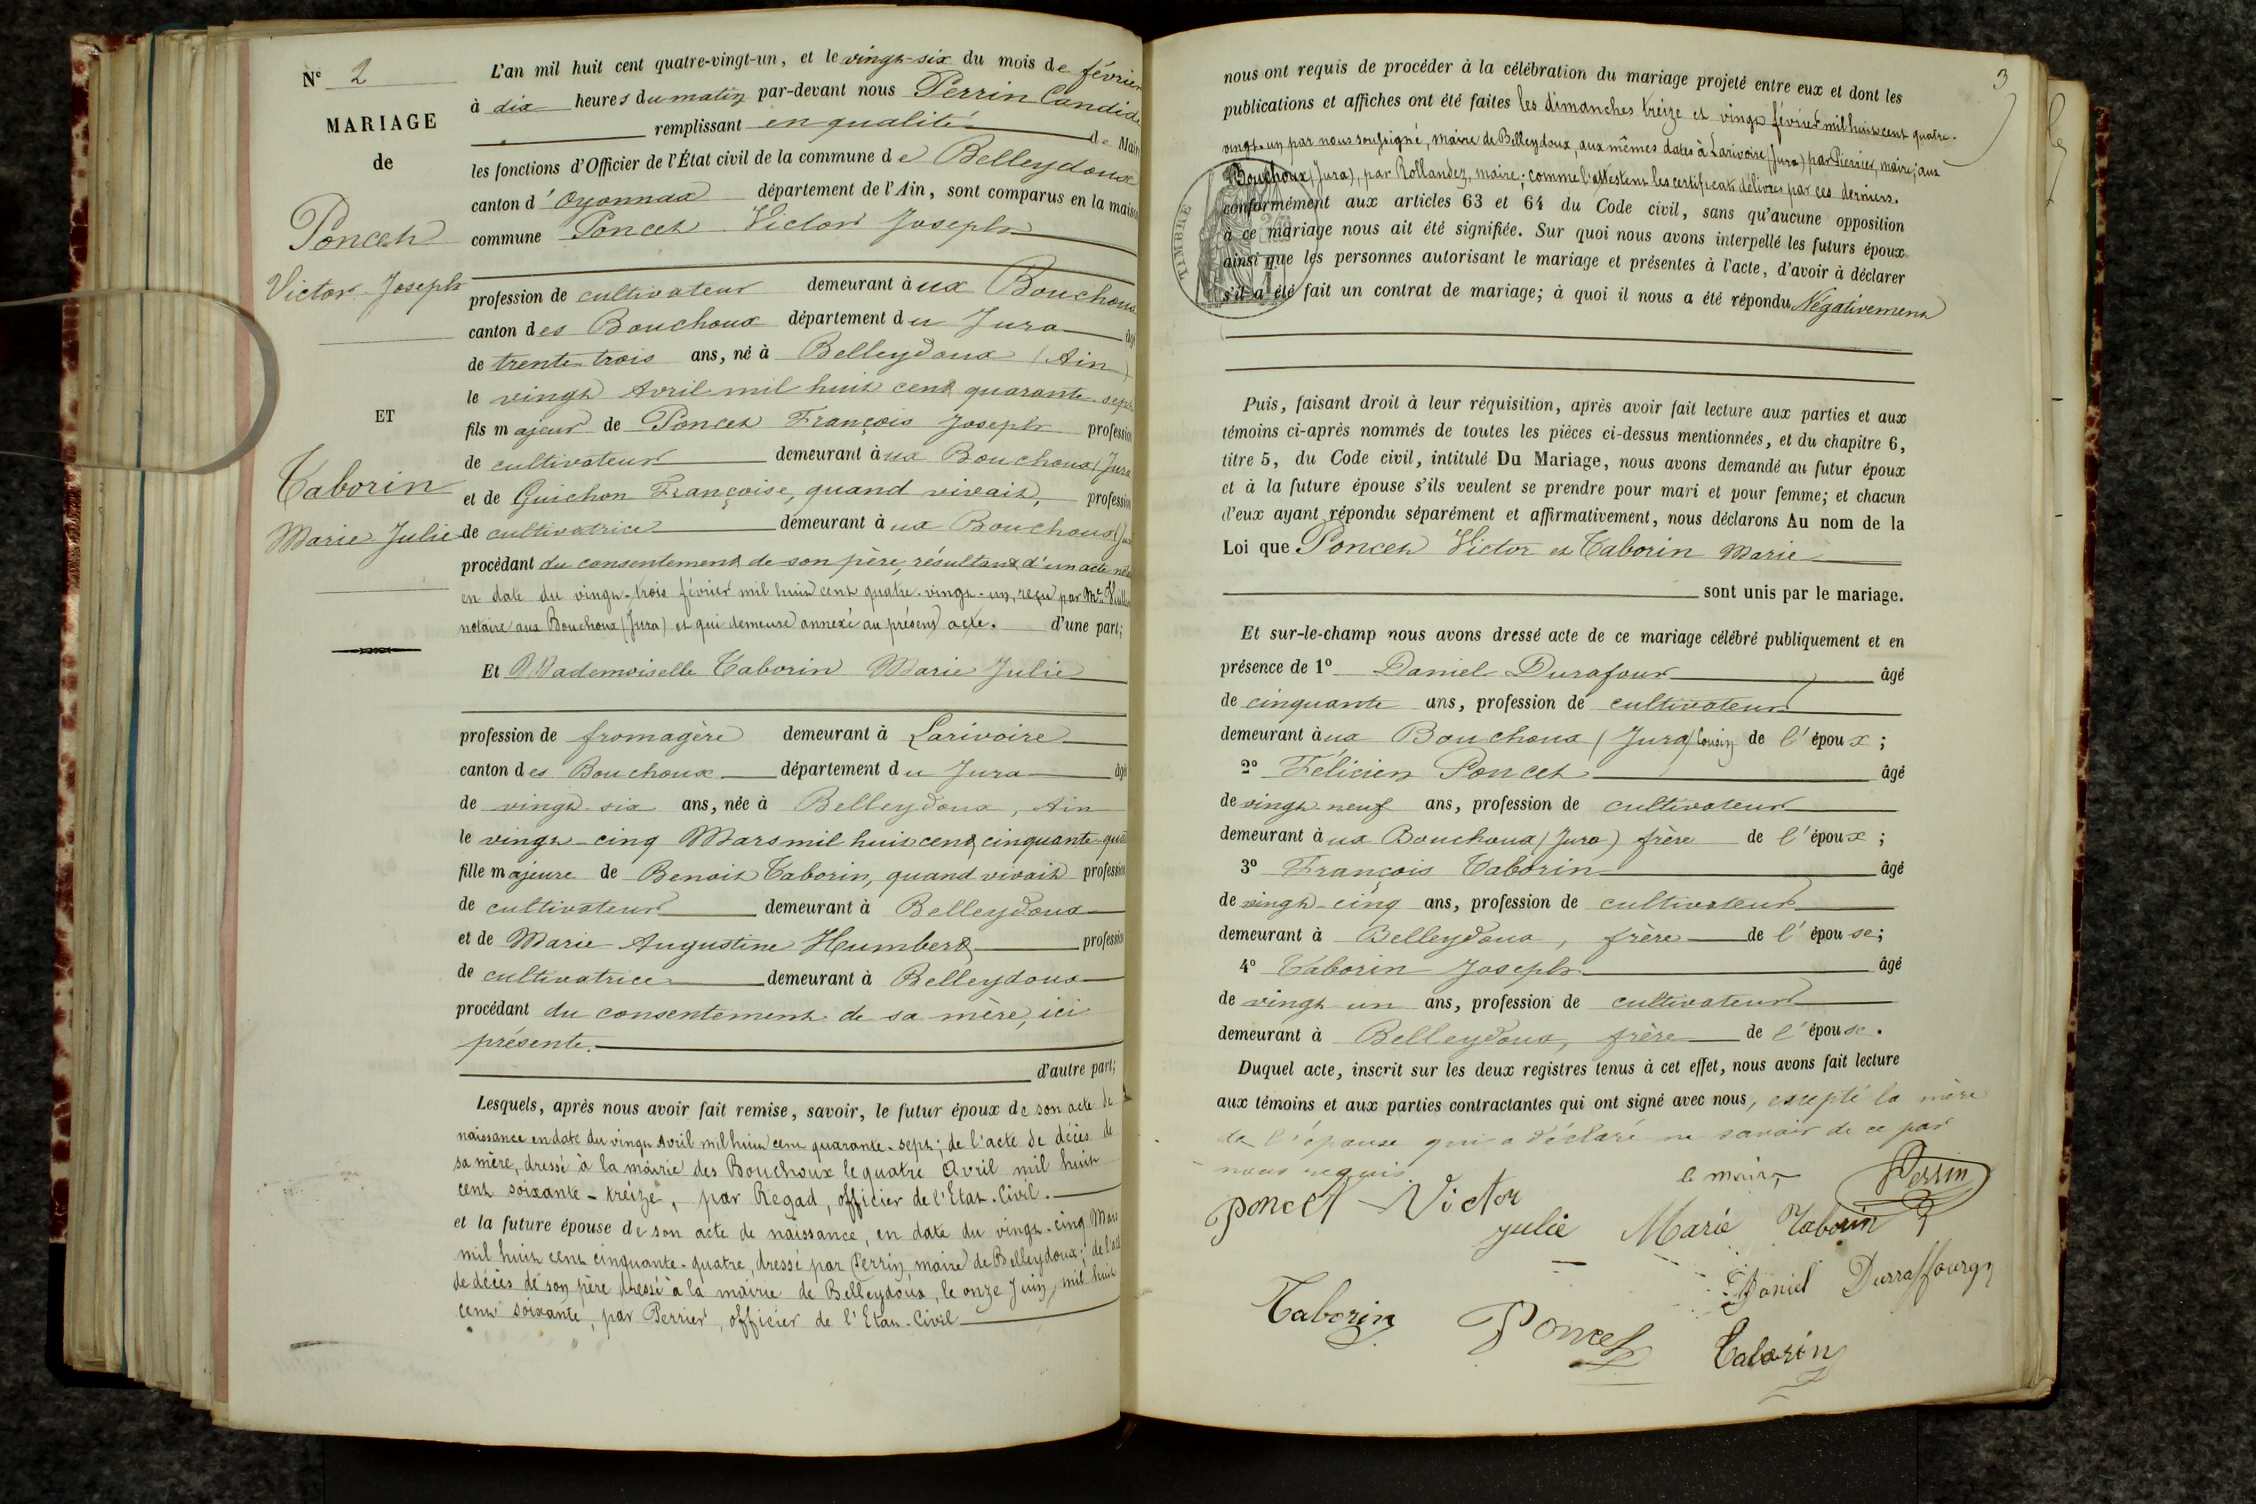 Nº 2
MARIAGE
de
Poncet
Victor Joseph
ET
Taborin
Marie Julie
L'an mil huit cent quatre-vingt-un, et le vingt-six du mois de février
à dix heures du matin par-devant nous Perrin Candide
remplissant en qualité de Maire
les fonctions d'Officier de l'État civil de la commune de Belleydoux
canton d'Oyonnax département de l'Ain, sont comparus en la maison
commune Poncet Victor Joseph
profession de cultivateur demeurant aux Bouchoux
canton des Bouchoux département du Jura âgé
de trente trois ans, né à Belleydoux (Ain)
le vingt Avril mil huit cent quarante-sept
fils majeur de Poncet François Joseph profession
de cultivateur demeurant aux Bouchoux (Jura
et de Guichon Françoise, quand vivait, profession
de cultivatrice demeurant aux Bouchoux (Jura
procédant du consentement de son père, résultant d'un acte
en date du vingt-trois février mil huit cent quatre-vingt-un, reçu par Me
notaire aux Bouchoux (Jura) et qui demeure annexé au présent acte. d'une part;
Et Mademoiselle Taborin Marie Julie
profession de fromagère demeurant à Larivoire
canton des Bouchoux département du Jura âgé
de vingt six ans, née à Belleydoux, Ain
le vingt-cinq Mars mil huit cent cinquante-quatre
fille majeure de Benoit Taborin, quand vivait profession
de cultivateur demeurant à Belleydoux
et de Marie Augustine Humbert profession
de cultivatrice demeurant à Belleydoux
procédant du consentement de sa mère, ici
présente.
d'autre part;
Lesquels, après nous avoir fait remise, savoir, le futur époux de son acte de
naissance en date du vingt Avril mil huit cent quarante-sept; de l'acte de décès de
sa mère, dressé à la mairie des Bouchoux le quatre Avril mil huit
cent soixante-treize, par Regad, officier de l'Etat-Civil.
et la future épouse de son acte de naissance, en date du vingt-cinq Mars
mil huit cent cinquante-quatre, dressé par Perrin, maire de Belleydoux; de l'acte
de décès de son père dressé à la mairie de Belleydoux, le onze Juin mil huit
cent soixante, par Perrier, officier de l'Etat-Civil
3
nous ont requis de procéder à la célébration du mariage projeté entre eux et dont les
publications et affiches ont été faites les dimanches treize et vingt février mil huit cent quatre-
vingt-un par nous soussigné, maire de Belleydoux, aux mêmes dates à Larivoire (Jura) par Perrier, maire; aux
Bouchoux (Jura), par Rollandez, maire; comme l'attestent les certificats délivrés par ces derniers.
TIMBRE
conformément aux articles 63 et 64 du Code civil, sans qu'aucune opposition
à ce mariage nous ait été signifiée. Sur quoi nous avons interpellé les futurs époux
ainsi que les personnes autorisant le mariage et présentes à l'acte, d'avoir à déclarer
s'il a été fait un contrat de mariage; à quoi il nous a été répondu Négativement
Puis, faisant droit à leur réquisition, après avoir fait lecture aux parties et aux
témoins ci-après nommés de toutes les pièces ci-dessus mentionnées, et du chapitre 6,
titre 5, du Code civil, intitulé Du Mariage, nous avons demandé au futur époux
et à la future épouse s'ils veulent se prendre pour mari et pour femme; et chacun
d'eux ayant répondu séparément et affirmativement, nous déclarons Au nom de la
Loi que Poncet Victor et Taborin Marie
sont unis par le mariage.
Et sur-le-champ nous avons dressé acte de ce mariage célébré publiquement et en
présence de 1º Daniel Durafour âgé
de cinquante ans, profession de cultivateur
demeurant aux Bouchoux (Jura) Cousin de l'époux;
2º Félicien Poncet âgé
de vingt-neuf ans, profession de cultivateur
demeurant aux Bouchoux (Jura) frère de l'époux;
3º François Taborin âgé
de vingt-cinq ans, profession de cultivateur
demeurant à Belleydoux, frère de l'épouse;
4º Taborin Joseph âgé
de vingt un ans, profession de cultivateur
demeurant à Belleydoux, frère de l'épouse.
Duquel acte, inscrit sur les deux registres tenus à cet effet, nous avons fait lecture
aux témoins et aux parties contractantes qui ont signé avec nous, excepté la mère
de l'épouse qui a déclaré ne savoir de ce par
nous requis.
le maire Perrin
Poncet Victor
Julie Marie Taborin
Daniel Durraffourg
Taborin Poncet Taborin